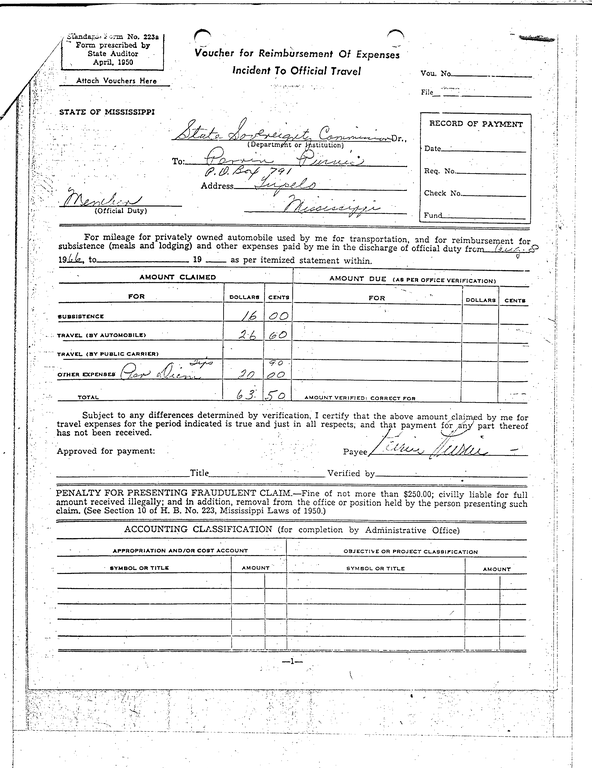 Standard Form No. 223a
Form prescribed by
State Auditor
April, 1950
Attach Vouchers Here
Voucher for Reimbursement Of Expenses
Incident To Official Travel
Vou. No.
File
STATE OF MISSISSIPPI
State Sovereignty Commission Dr.,
(Department or Institution)
To:
P.O. Box 791
Address Tupelo
Mississippi
Member
(Official Duty)
RECORD OF PAYMENT
Date
Req. No.
Check No.
Fund
For mileage for privately owned automobile used by me for transportation, and for reimbursement for
subsistence (meals and lodging) and other expenses paid by me in the discharge of official duty from Aug. 8
1966, to 19 as per itemized statement within.
AMOUNT CLAIMED AMOUNT DUE (AS PER OFFICE VERIFICATION)
FOR DOLLARS CENTS FOR DOLLARS CENTS
SUBSISTENCE 16 00
TRAVEL (BY AUTOMOBILE) 26 60
TRAVEL (BY PUBLIC CARRIER)
Tips 90
OTHER EXPENSES Per Diem 20 00
TOTAL 63. 50 AMOUNT VERIFIED: CORRECT FOR
Subject to any differences determined by verification, I certify that the above amount claimed by me for
travel expenses for the period indicated is true and just in all respects, and that payment for any part thereof
has not been received.
Approved for payment: Payee
Title Verified by
PENALTY FOR PRESENTING FRAUDULENT CLAIM.—Fine of not more than $250.00; civilly liable for full
amount received illegally; and in addition, removal from the office or position held by the person presenting such
claim. (See Section 10 of H. B. No. 223, Mississippi Laws of 1950.)
ACCOUNTING CLASSIFICATION (for completion by Administrative Office)
APPROPRIATION AND/OR COST ACCOUNT OBJECTIVE OR PROJECT CLASSIFICATION
SYMBOL OR TITLE AMOUNT SYMBOL OR TITLE AMOUNT
—1—